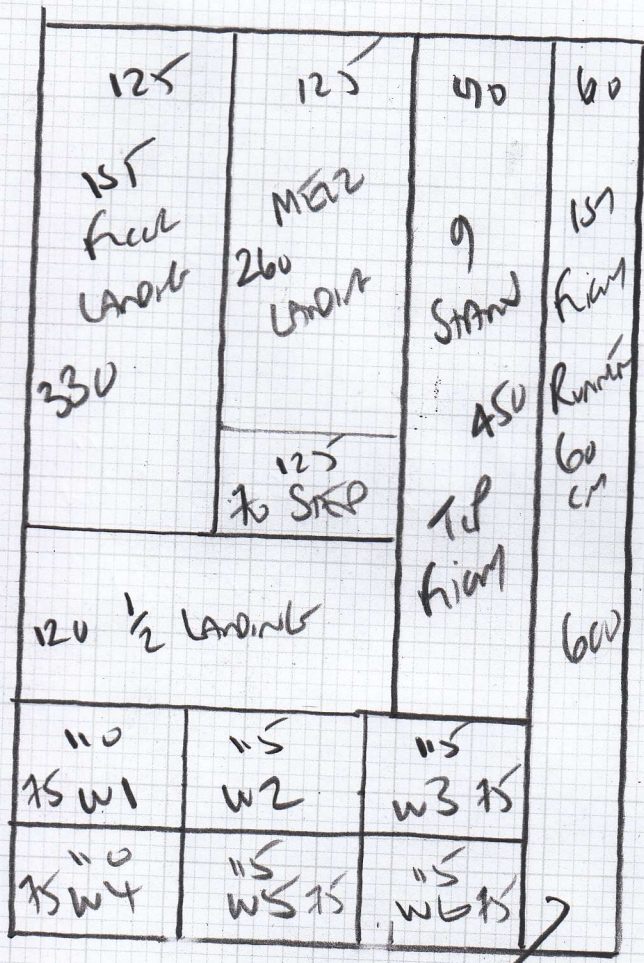 125
1ST
FLOOR
LANDING
330
125
MEZZ
260
LANDING
125
70 STEP
90
9
STAND
450
TOP
FLIGHT
60
1ST
FLIGHT
RUNNER
60
CM
600
120 1/2 LANDING
110
75 W1
115
W2
115
W3 75
110
75 W4
115
W5 75
115
W6 75